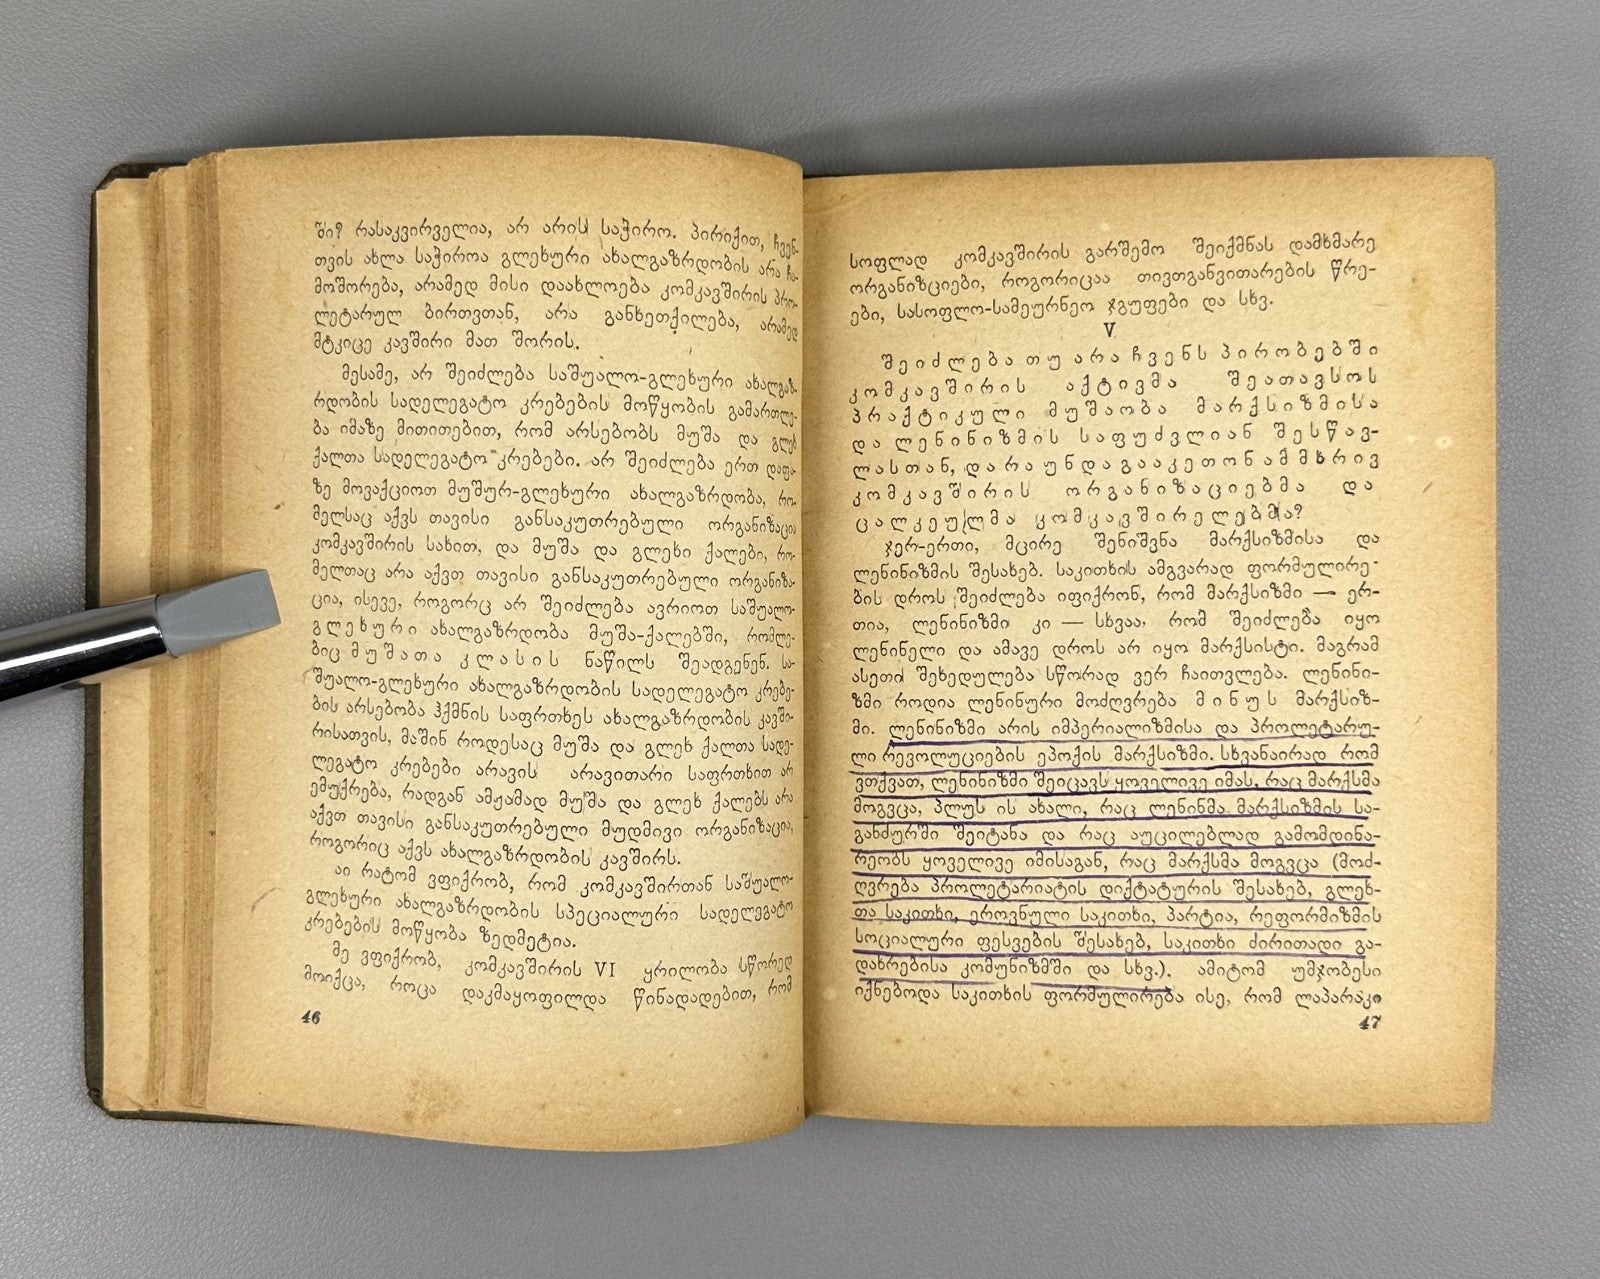 ში? რასაკვირველია, არ არის საჭირო. პირიქით, ჩვენ-
თვის ახლა საჭიროა გლეხური ახალგაზრდობის არა ჩა-
მოშორება, არამედ მისი დაახლოება კომკავშირის პრო-
ლეტარულ ბირთვთან, არა განხეთქილება, არამედ
მტკიცე კავშირი მათ შორის.
მესამე, არ შეიძლება საშუალო-გლეხური ახალგაზ-
რდობის სადელეგატო კრებების მოწყობის გამართლე-
ბა იმაზე მითითებით, რომ არსებობს მუშა და გლეხ
ქალთა სადელეგატო კრებები. არ შეიძლება ერთ დაფა-
ზე მოვაქციოთ მუშურ-გლეხური ახალგაზრდობა, რო-
მელსაც აქვს თავისი განსაკუთრებული ორგანიზაცია
კომკავშირის სახით, და მუშა და გლეხი ქალები, რო-
მელთაც არა აქვთ თავისი განსაკუთრებული ორგანიზა-
ცია, ისევე, როგორც არ შეიძლება ავრიოთ საშუალო-
გლეხური ახალგაზრდობა მუშა-ქალებში, რომლე-
ბიც მუშათა კლასის ნაწილს შეადგენენ. სა-
შუალო-გლეხური ახალგაზრდობის სადელეგატო კრებე-
ბის არსებობა ჰქმნის საფრთხეს ახალგაზრდობის კავში-
რისათვის, მაშინ როდესაც მუშა და გლეხ ქალთა სადე-
ლეგატო კრებები არავის არავითარი საფრთხით არ
ემუქრება, რადგან ამჟამად მუშა და გლეხ ქალებს არა
აქვთ თავისი განსაკუთრებული მუდმივი ორგანიზაცია,
როგორიც აქვს ახალგაზრდობის კავშირს.
აი რატომ ვფიქრობ, რომ კომკავშირთან საშუალო-
გლეხური ახალგაზრდობის სპეციალური სადელეგატო
კრებების მოწყობა ზედმეტია.
მე ვფიქრობ, კომკავშირის VI ყრილობა სწორედ
მოიქცა, როცა დაკმაყოფილდა წინადადებით, რომ
46
სოფლად კომკავშირის გარშემო შეიქმნას დამხმარე
ორგანიზციები, როგორიცაა თივთგანვითარების წრე-
ები, სასოფლო-სამეურნეო ჯგუფები და სხვ.
V
შეიძლება თუ არა ჩვენს პირობებში
კომკავშირის აქტივმა შეათავსოს
პრაქტიკული მუშაობა მარქსიზმისა
და ლენინიზმის საფუძვლიან შესწავ-
ლასთან, და რა უნდა გააკეთონ ამ მხრივ
კომკავშირის ორგანიზაციებმა და
ცალკეულმა კომკავშირელებმა?
ჯერ-ერთი, მცირე შენიშვნა მარქსიზმისა და
ლენინიზმის შესახებ. საკითხის ამგვარად ფორმულირე-
ბის დროს შეიძლება იფიქრონ, რომ მარქსიზმი — ერ-
თია, ლენინიზმი კი — სხვაა, რომ შეიძლება იყო
ლენინელი და ამავე დროს არ იყო მარქსისტი. მაგრამ
ასეთი შეხედულება სწორად ვერ ჩაითვლება. ლენინი-
ზმი როდია ლენინური მოძღვრება მინუს მარქსიზ-
მი. ლენინიზმი არის იმპერიალიზმისა და პროლეტარუ-
ლი რევოლუციების ეპოქის მარქსიზმი. სხვანაირად რომ
ვთქვათ, ლენინიზმი შეიცავს ყოველივე იმას, რაც მარქსმა
მოგვცა, პლუს ის ახალი, რაც ლენინმა მარქსიზმის სა-
განძურში შეიტანა და რაც აუცილებლად გამომდინა-
რეობს ყოველივე იმისაგან, რაც მარქსმა მოგვცა (მოძ-
ღვრება პროლეტარიატის დიქტატურის შესახებ, გლეხ-
თა საკითხი, ეროვნული საკითხი, პარტია, რეფორმიზმის
სოციალური ფესვების შესახებ, საკითხი ძირითადი გა-
დახრებისა კომუნიზმში და სხვ.). ამიტომ უმჯობესი
იქნებოდა საკითხის ფორმულირება ისე, რომ ლაპარაკი
47